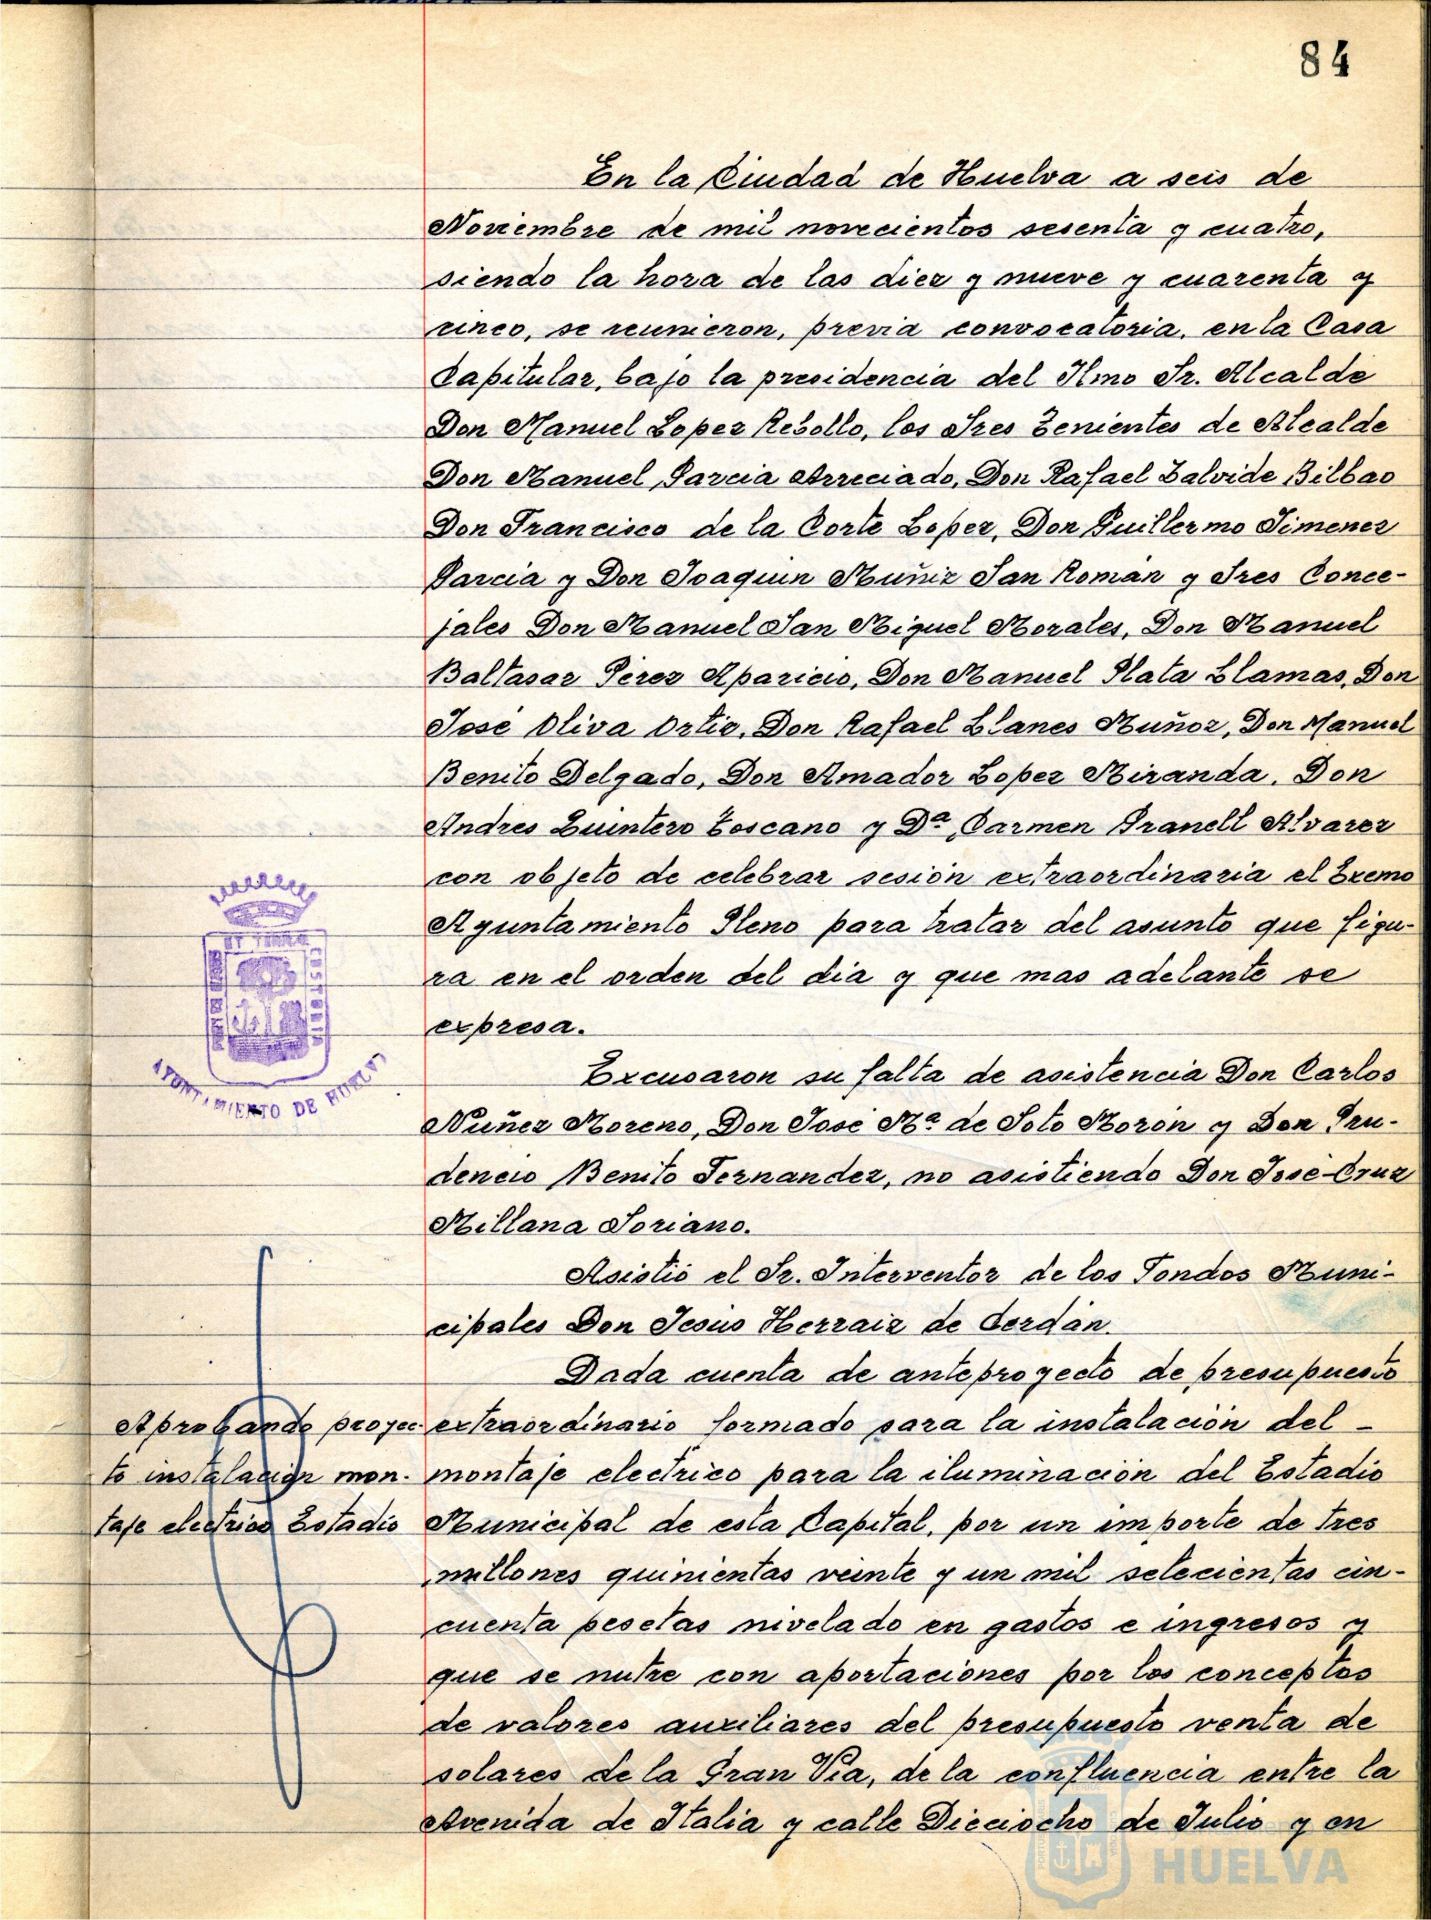 84
En la Ciudad de Huelva a seis de
Noviembre de mil novecientos sesenta y cuatro,
siendo la hora de las diez y nueve y cuarenta y
cinco, se reunieron, previa convocatoria, en la Casa
Capitular, bajo la presidencia del Ilmo Sr. Alcalde
Don Manuel Lopez Rebollo, los Sres Tenientes de Alcalde
Don Manuel Garcia Arreciado, Don Rafael Zalvide Bilbao
Don Francisco de la Corte Lopez, Don Guillermo Jimenez
Garcia y Don Joaquin Muñiz San Román y Sres Conce-
jales Don Manuel San Miguel Morales, Don Manuel
Baltasar Pérez Aparicio, Don Manuel Plata Llamas, Don
José Oliva Ortiz, Don Rafael Llanes Muñoz, Don Manuel
Benito Delgado, Don Amador Lopez Miranda, Don
Andres Quintero Toscano y Dª Carmen Granell Alvarez
con objeto de celebrar sesión extraordinaria el Excmo
Ayuntamiento Pleno para tratar del asunto que figu-
ra en el orden del dia y que mas adelante se
expresa.
Excusaron su falta de asistencia Don Carlos
Nuñez Moreno, Don José Mª de Soto Morón y Don Pru-
dencio Benito Fernandez, no asistiendo Don José-Cruz
Millana Soriano.
Asistió el Sr. Interventor de los Fondos Muni-
cipales Don Jesús Herraiz de Cerdán.
Dada cuenta de anteproyecto de presupuesto
extraordinario formado para la instalación del -
montaje electrico para la iluminación del Estadio
Municipal de esta Capital, por un importe de tres
millones quinientas veinte y un mil setecientas cin-
cuenta pesetas nivelado en gastos e ingresos y
que se nutre con aportaciones por los conceptos
de valores auxiliares del presupuesto venta de
solares de la Gran Via, de la confluencia entre la
Avenida de Italia y calle Dieciocho de Julio y en
Aprobando proyec-
to instalación mon-
taje electrico Estadio
ET TERRE CUSTODIA
AYUNTAMIENTO DE HUELVA
HUELVA